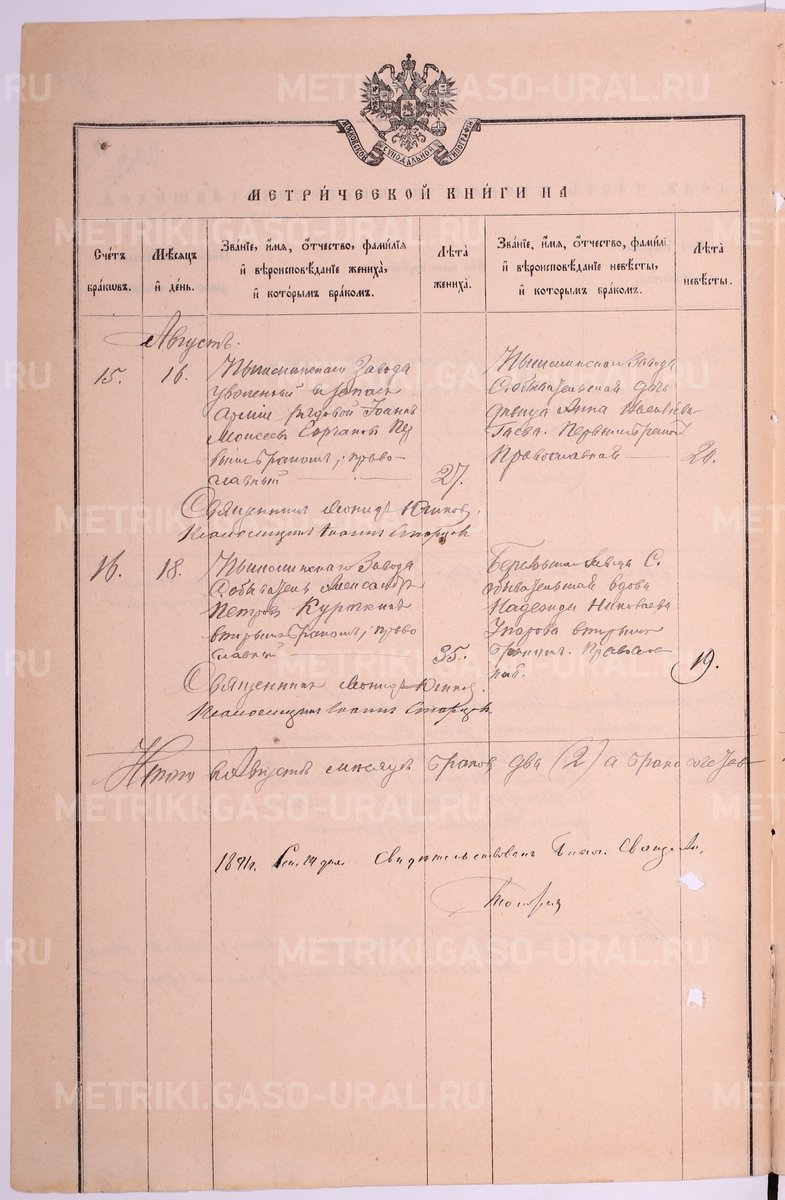 МОСКОВСКОЙ СѴНОДАЛЬНОЙ ТИПОГРАФІИ
МЕТРИ́ЧЕСКОЙ КНИ́ГИ НА
Сче́тъ бра́кωвъ.
Мѣ́сяцъ и҆ де́нь.
Зва́нїе, и҆́мя, ѻ҆́тчество, фами́лїя и҆ вѣроисповѣ́данїе жениха̀, и҆ кото́рымъ бра́комъ.
Лѣ́та жениха̀.
Зва́нїе, и҆́мя, ѻ҆́тчество, фами́лї и҆ вѣроисповѣ́данїе невѣ́сты, и҆ кото́рымъ бра́комъ.
Лѣ́та невѣ́сты.
Августъ.
15.
16.
Пышминскаго Завода
уволенный въ запасъ
Арміи рядовой Іоаннъ
Моисеевъ Пер
вымъ бракомъ, право-
славный
27.
Пышминскаго Завода
Собывательская дочь
дѣвица Анна
Первымъ бракомъ
Православная
20.
Священникъ Леонидъ
Псаломщикъ Іоаннъ Старцовъ
16.
18.
Пышминскаго Завода
Собыватель Александръ
Петровъ Курочкинъ
вторымъ бракомъ, право
славный
35.
Завода С.
обывательская вдова
Надежда Николаева
вторымъ
бракомъ. Православ
ная.
19.
Священникъ Леонидъ
Псаломщикъ Іоаннъ Старцовъ
Итого въ Августѣ мѣсяцѣ браковъ два (2) а
1891г. Сен. 14 дня. Свидѣтельствовалъ
METRIKI.GASO-URAL.RU